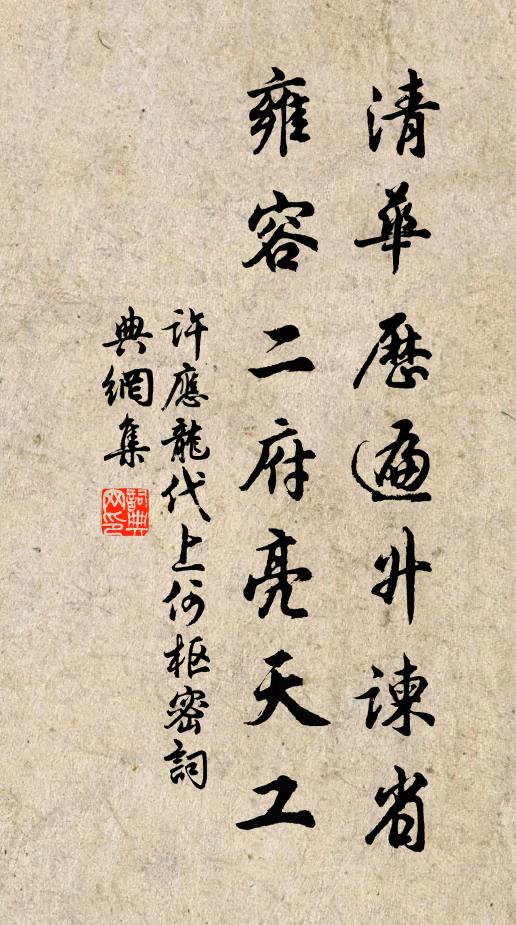 清華歷遍升諫省
雍容二府亮天工
許應龍代上何枢密詞
典網集
詞典网印